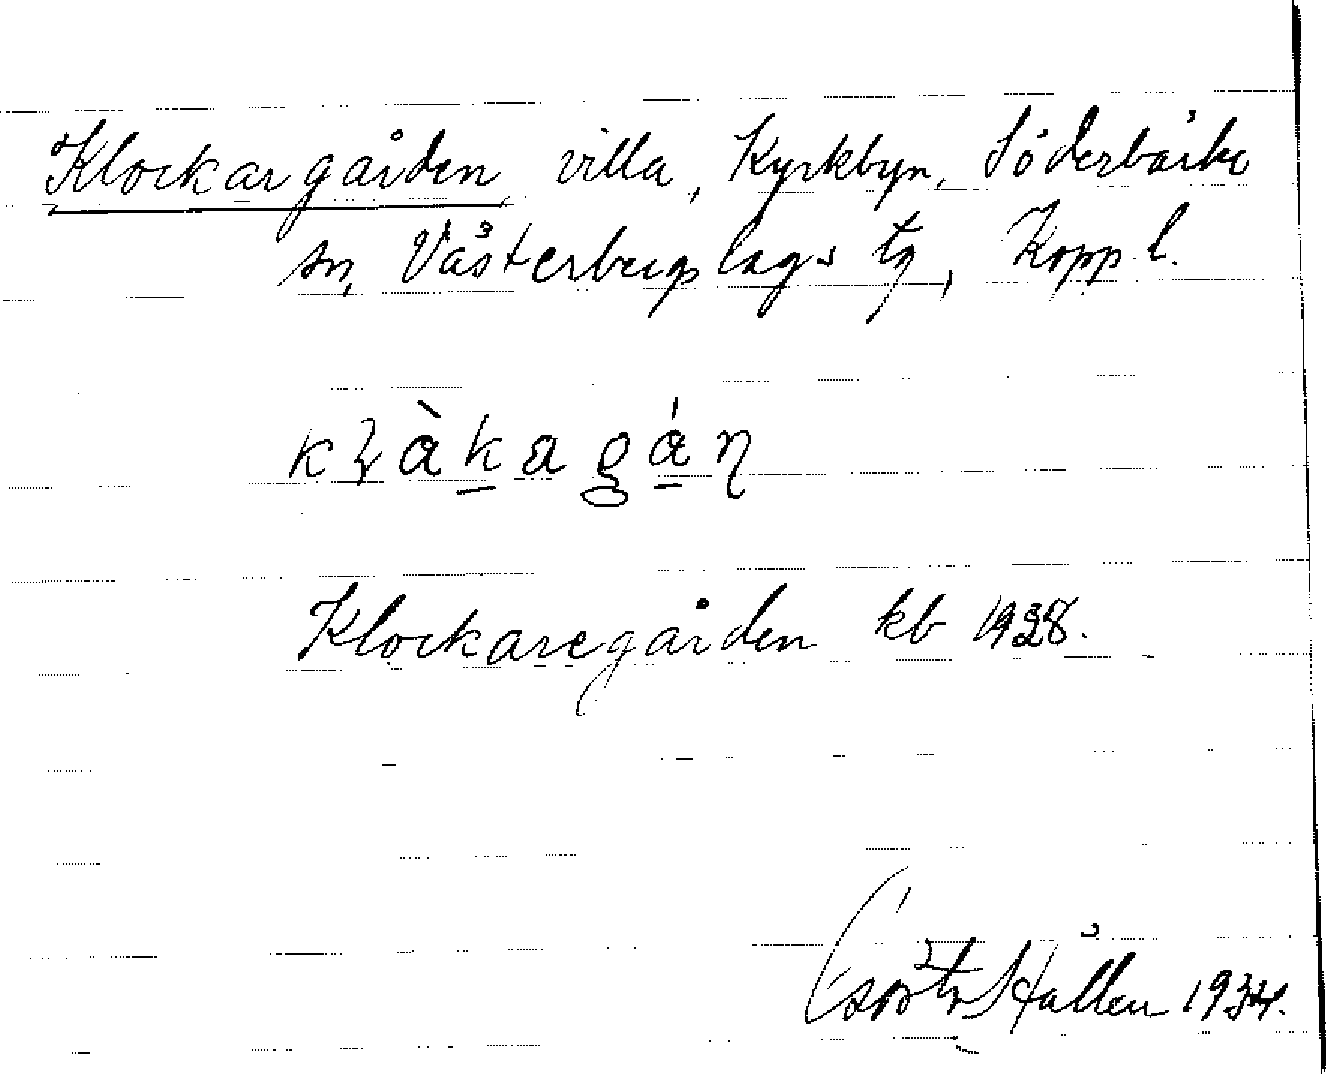 Klockargården, villa, Kyrkbyn, Söderbärke
sn, Västerbergslags tg, Kopp. l.
Klockaregården kb 1928.
Hållen 1934.